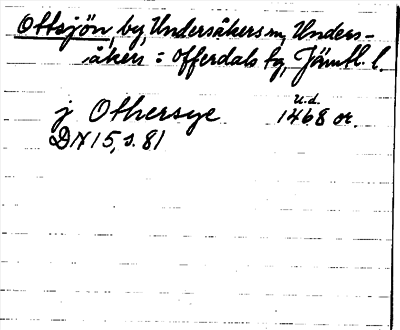 Ottsjön, by, Undersåkers sn, Unders-
åkers = Offerdals tg, Jämtl. l.
u.d.
j Othersye 1468 or.
DN 15, s. 81